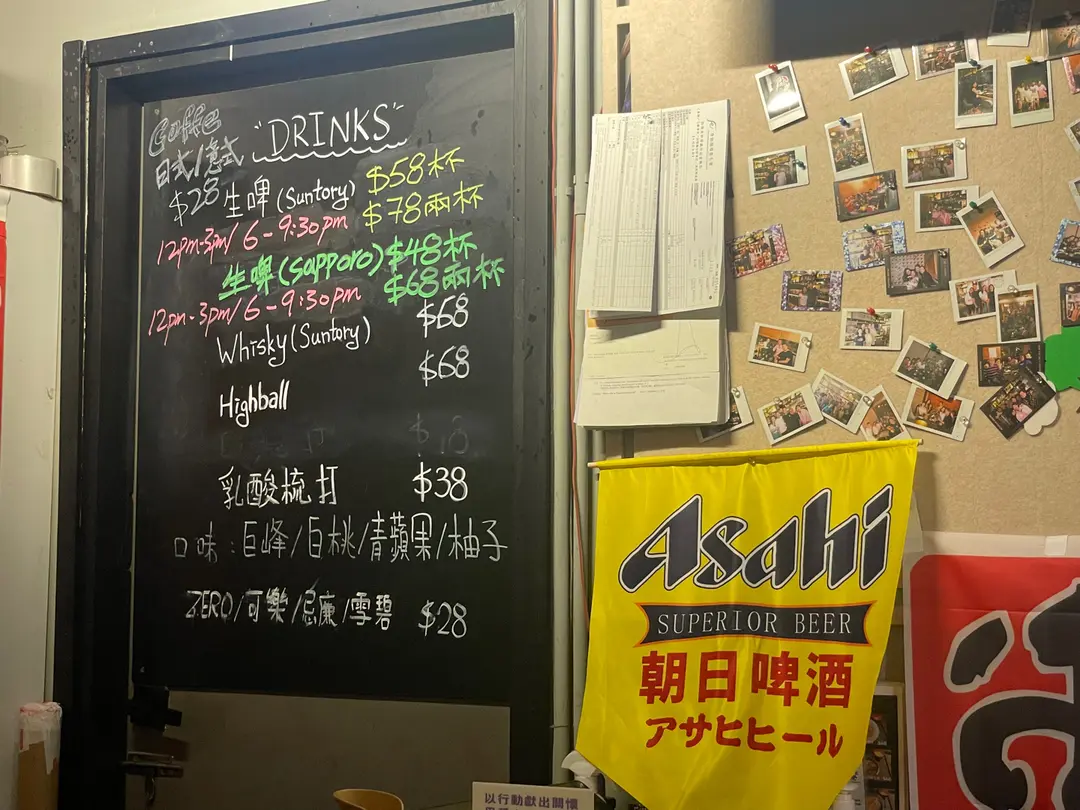 Coffe
"DRINKS"
日式/意式
$28
生啤(Suntory) $58杯
12pm-3pm/6-9:30pm $78兩杯
生啤(Sapporo) $48杯
12pm-3pm/6-9:30pm $68兩杯
Whisky(Suntory) $68
Highball $68
乳酸梳打 $38
口味:巨峰/白桃/青蘋果/柚子
ZERO/可樂/忌廉/雪碧 $28
Asahi
SUPERIOR BEER
朝日啤酒
アサヒヒール
以行動獻出關懷